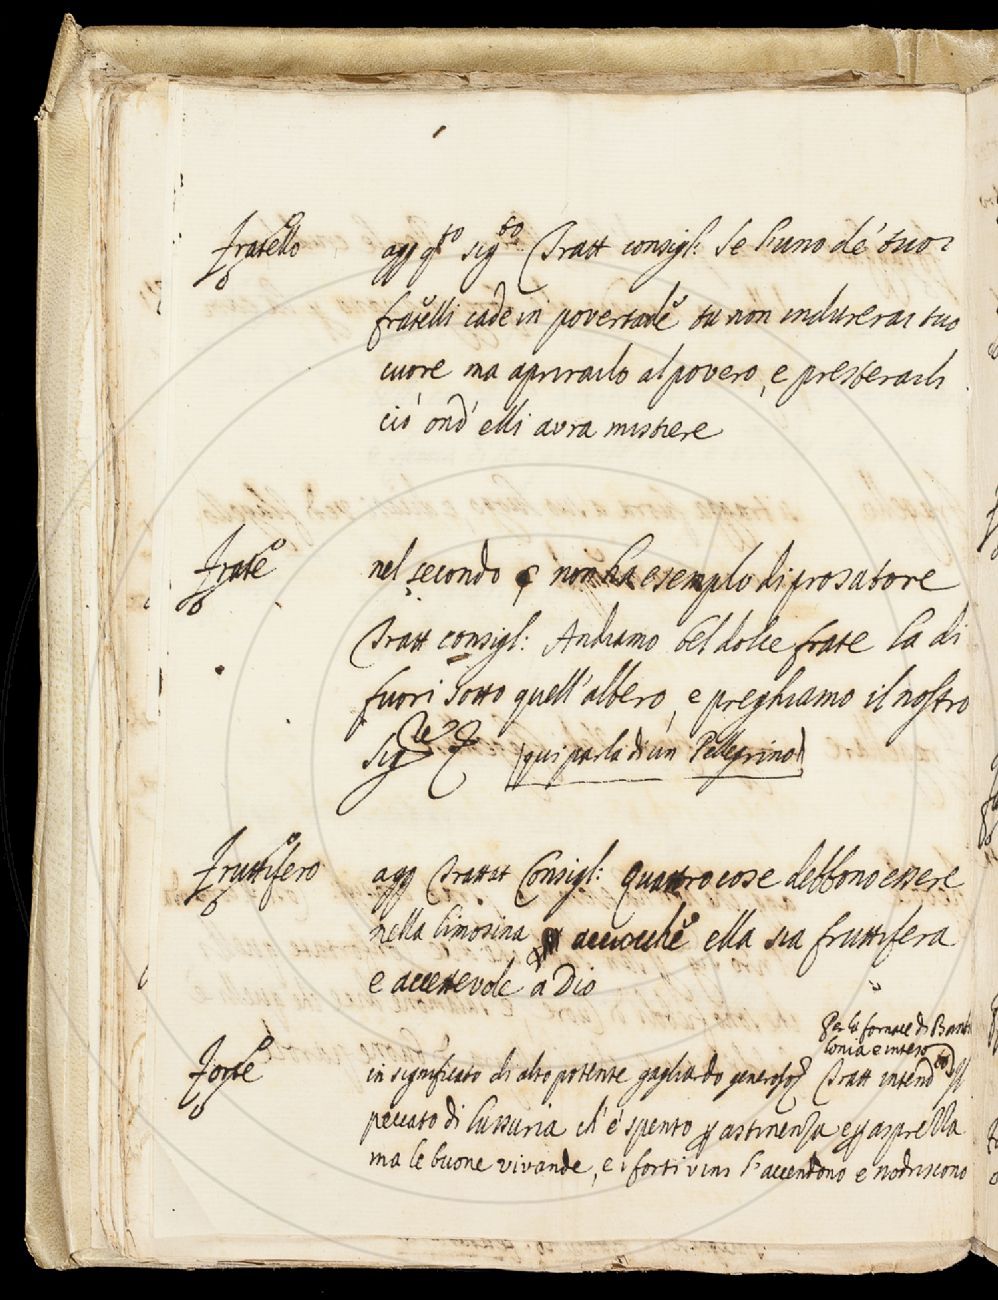 Fratello agg q.to sig.to Tratt consigl: Se l'uno de' tuoi
fratelli cade in povertade tu non indurerai tuo
cuore ma aprirailo al povero, e presterarli
ciò ond' elli avra mistiere
Frate nel secondo § non ha esemplo di prosatore
Tratt consigl: Andiamo bel dolce frate la di
fuori sotto quell' albero, e preghiamo il nostro
Sig.re &c (qui parla di un Pellegrino)
Fruttifero agg Trattat Consigl: Quattro cose debbono essere
nella limosina acciocché ella sia fruttifera
e accettevole a Dio
Per la fornace di Babi
lonia e inteso
Forte in significato di alto potente gagliardo generoso Tratt intend
peccato di lussuria ch' è spento p astinenza e p asprezza
ma le buone vivande, e i forti vini l' accendono e nodriscono